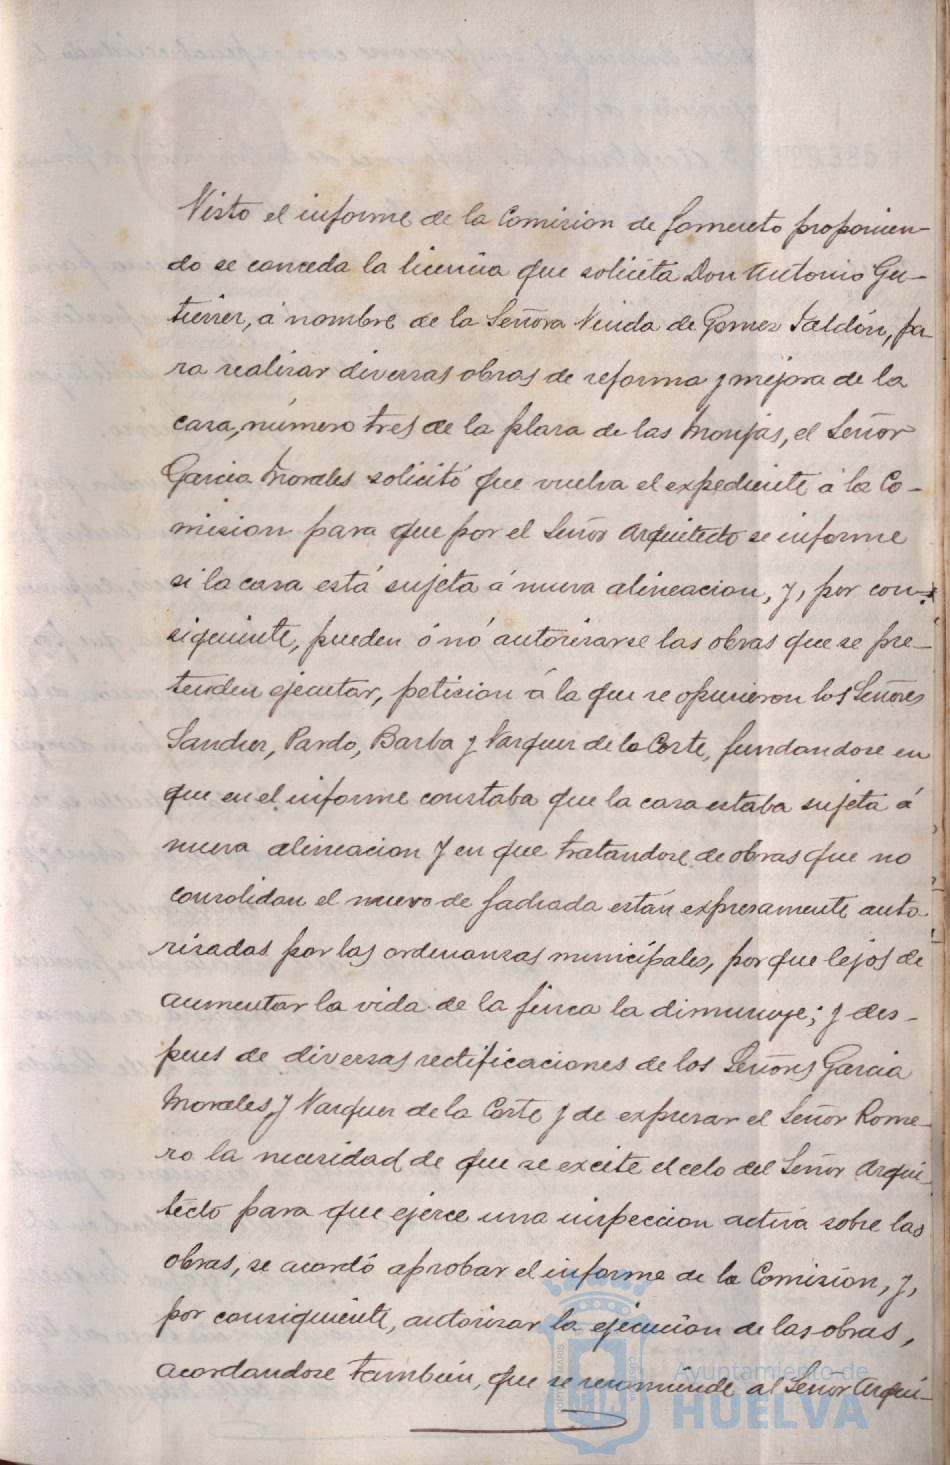 Visto el informe de la Comision de fomento proponien-
do se conceda la licencia que solicita Don Antonio Gu-
tierrez, á nombre de la Señora Viuda de Gomez Saldón, pa-
ra realizar diversas obras de reforma y mejora de la
casa, número tres de la plaza de las Monjas, el Señor
Garcia Morales solicitó que vuelva el expediente á la Co-
mision para que por el Señor Arquitecto se informe
si la casa está sujeta á nueva alineacion, y, por con-
siguiente, pueden ó nó autorizarse las obras que se pre-
tenden ejecutar, peticion á la que se opusieron los Señores
Sanchez, Pardo, Barba y Vazquez de la Corte, fundandose en
que en el informe constaba que la casa estaba sujeta á
nueva alineacion y en que tratandose de obras que no
consolidan el muro de fachada están expresamente auto
rizadas por las ordenanzas municipales, porque lejos de
aumentar la vida de la finca la dimunuye; y des-
pues de diversas rectificaciones de los Señores Garcia
Morales y Vazquez de la Corte y de expresar el Señor Rome-
ro la necesidad de que se excite el celo del Señor Arqui-
tecto para que ejerce una inspeccion activa sobre las
obras, se acordó aprobar el informe de la Comision, y,
por consiguiente, autorizar la ejecucion de las obras,
acordandose tambien, que se recomiende al Señor Arqui-
Ayuntamiento de
HUELVA